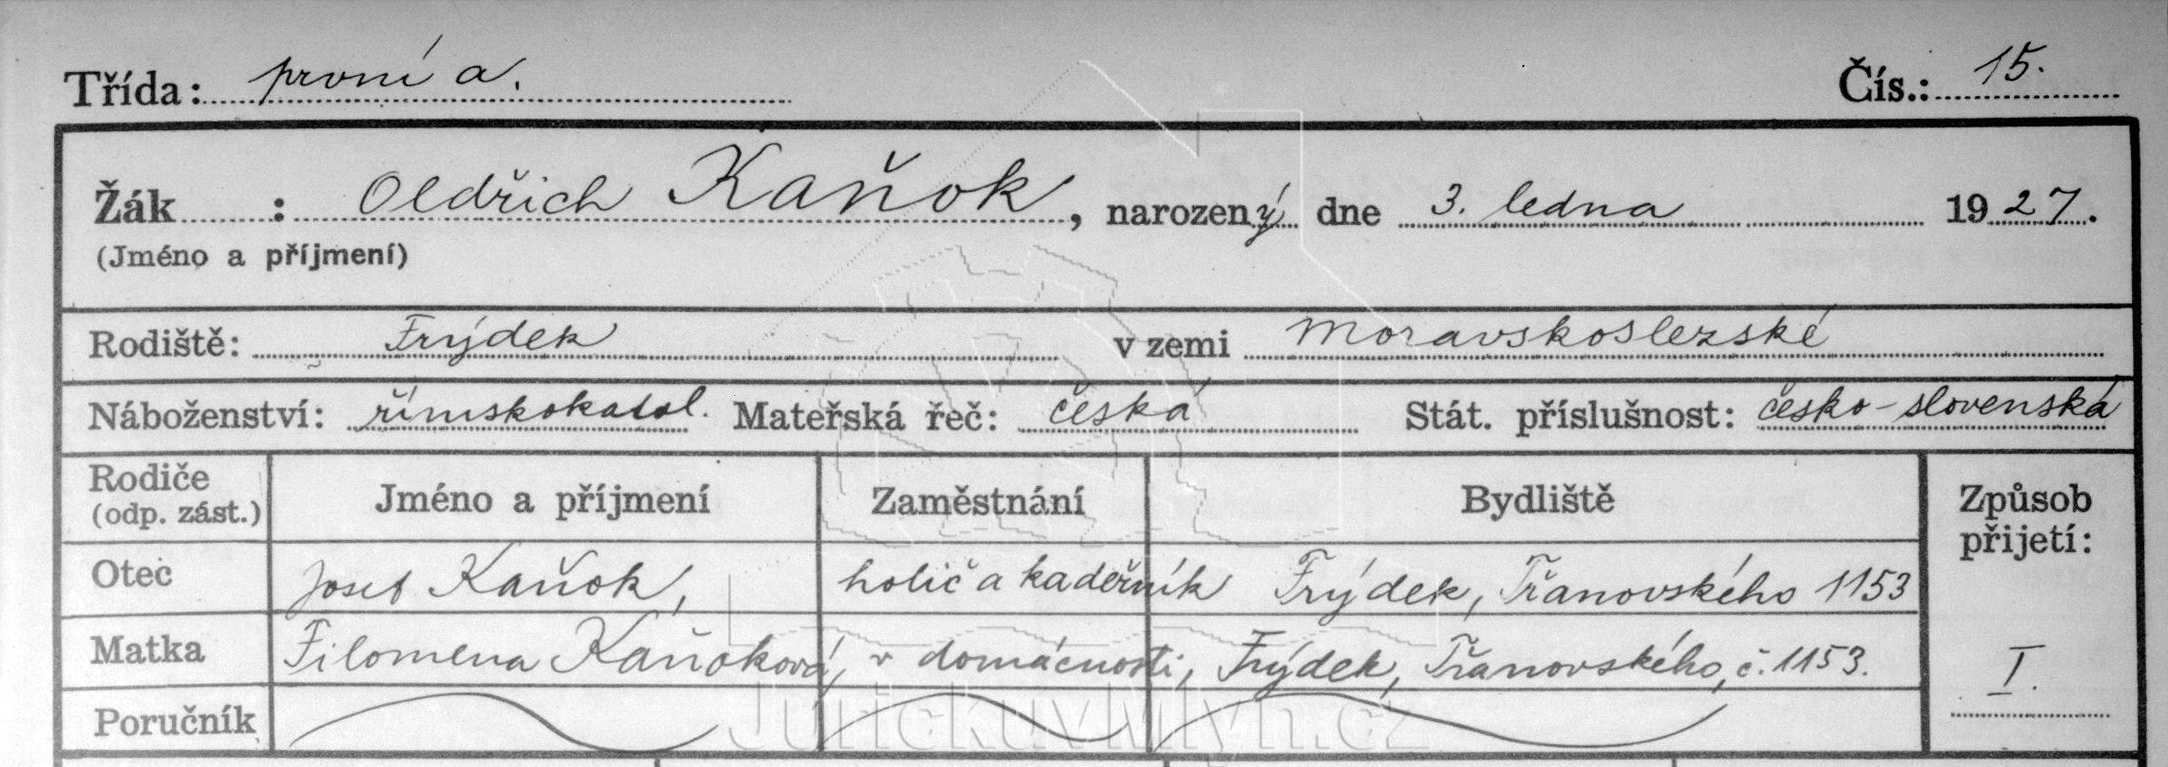 Třída: první a. Čís.: 15.
Žák : Oldřich Kaňok, narozený dne 3. ledna 1927.
(Jméno a příjmení)
Rodiště: Frýdek v zemi Moravskoslezské
Náboženství: římskokatol. Mateřská řeč: česká Stát. příslušnost: česko-slovenská
Rodiče (odp. zást.) Jméno a příjmení Zaměstnání Bydliště Způsob přijetí:
Otec Josef Kaňok, holič a kadeřník Frýdek, Třanovského 1153
Matka Filomena Kaňoková, v domácnosti, Frýdek, Třanovského, č. 1153. I.
Poručník
JurickuvMlyn.cz